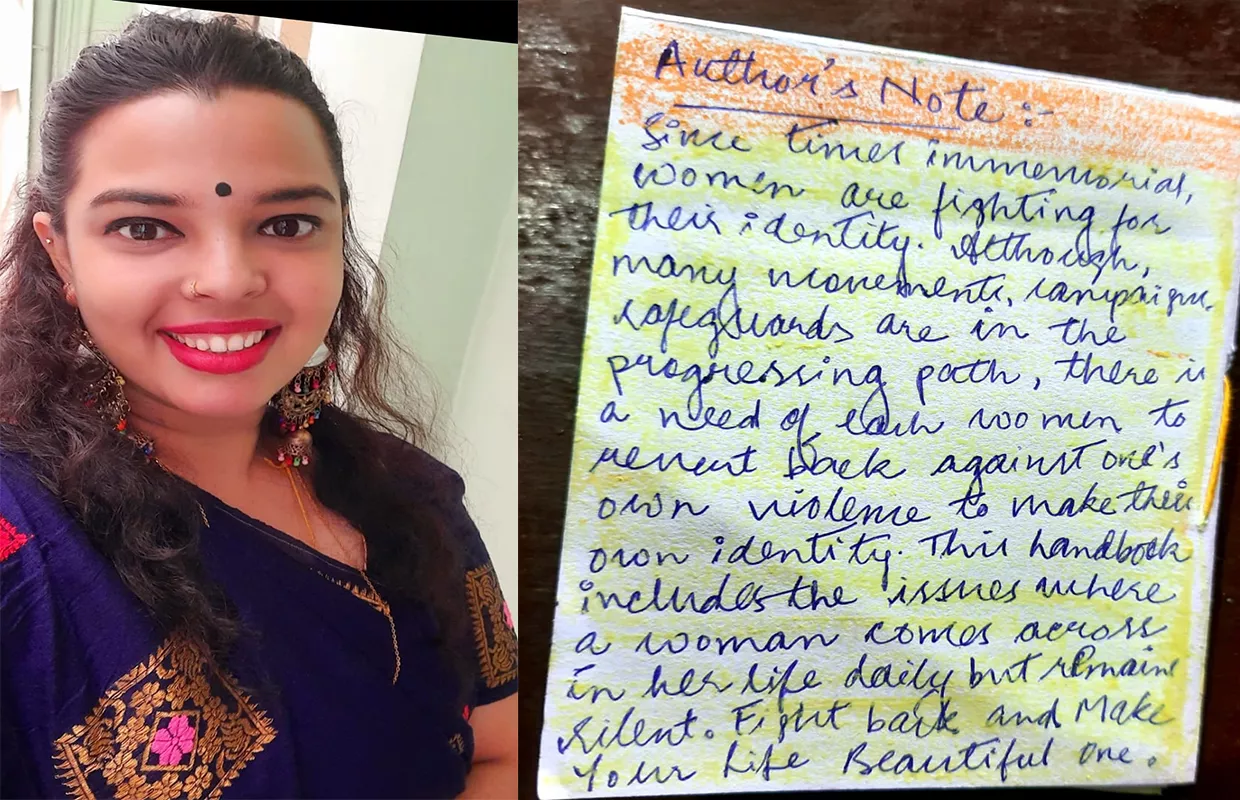 Author's Note :-
Since times immemorial,
women are fighting for
their identity. Although,
many movements, campaigns,
safeguards are in the
progressing path, there is
a need of each women to
revert back against one's
own violence to make their
own identity. This handbook
includes the issues where
a woman comes across
in her life daily but remains
silent. Fight back and Make
Your Life Beautiful One.